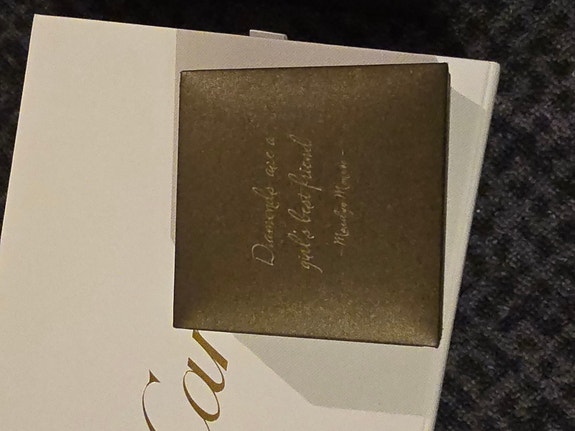 Diamonds are a
girl's best friend
- Marilyn Monroe -
Car